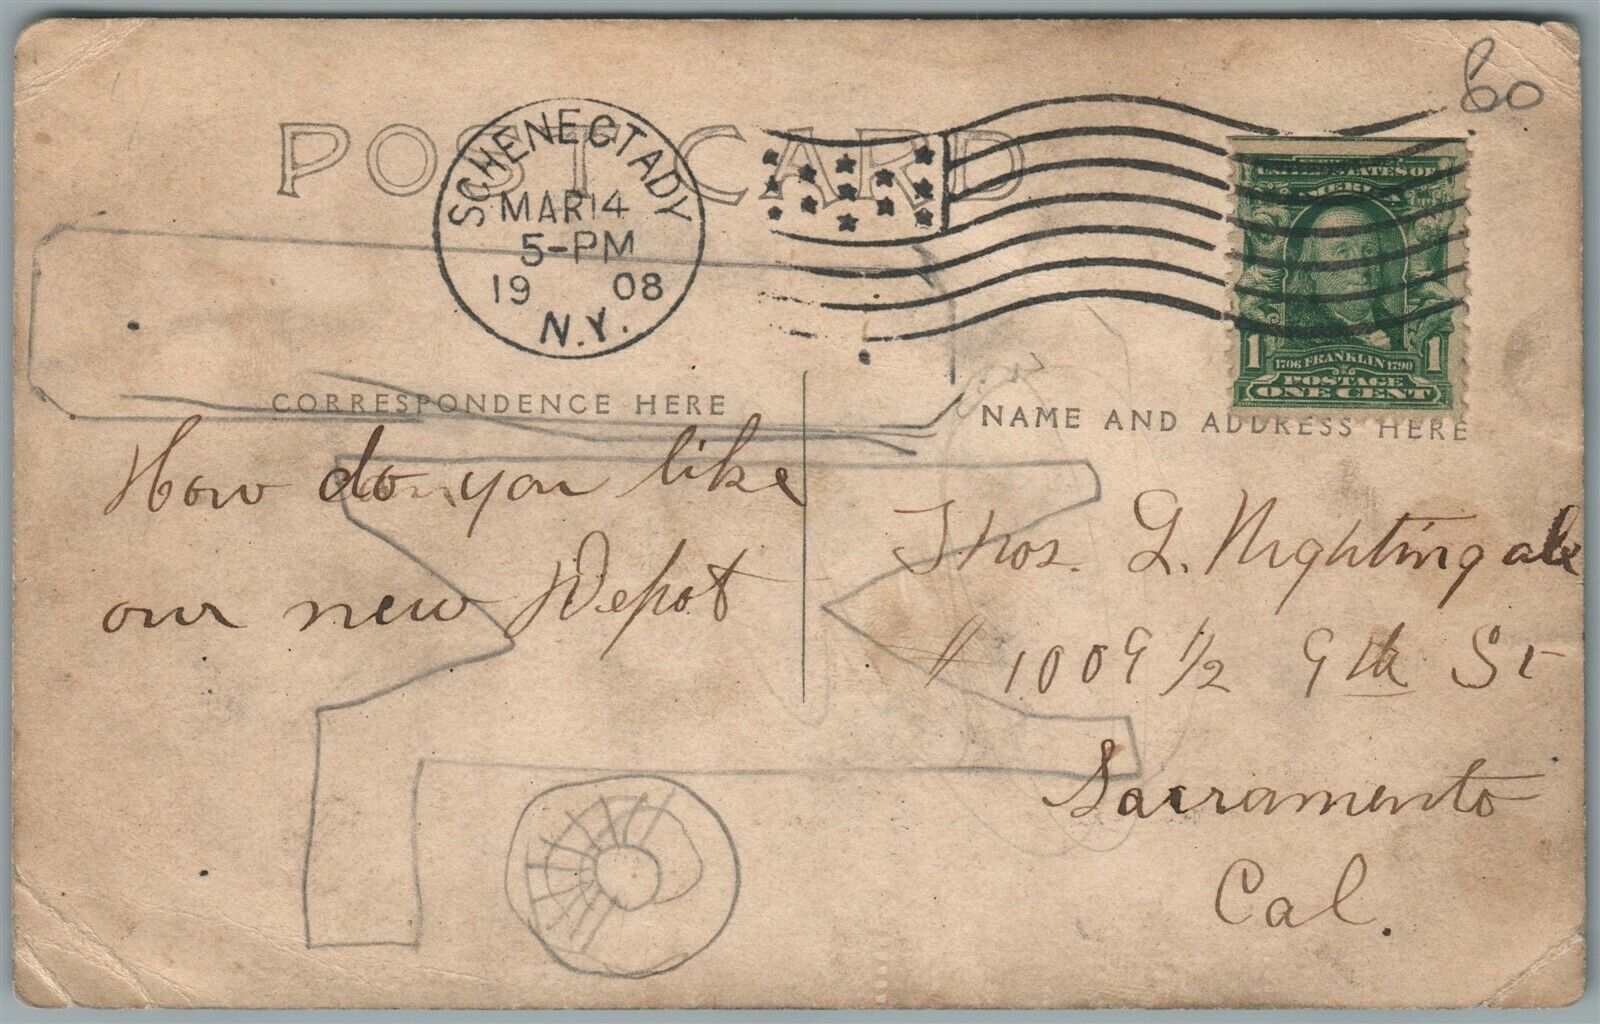 60
POST CARD
SCHENECTADY
MAR 14
5-PM
19 08
N.Y.
UNITED STATES OF
AMERICA
1 1
1706 FRANKLIN 1790
POSTAGE
ONE CENT
CORRESPONDENCE HERE
NAME AND ADDRESS HERE
How do you like
our new Depot
Thos. G. Nightingale
# 1009 1/2 9th St
Sacramento
Cal.